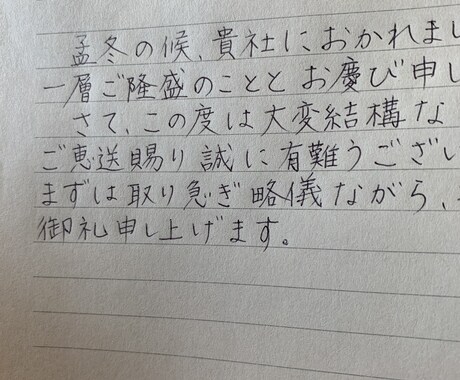 孟冬の候、貴社におかれまし
一層ご隆盛のことと お慶び申し
さて、この度は大変結構な
ご恵送賜り 誠に 有難うござい
まずは取り急ぎ略儀ながら、
御礼申し上げます。